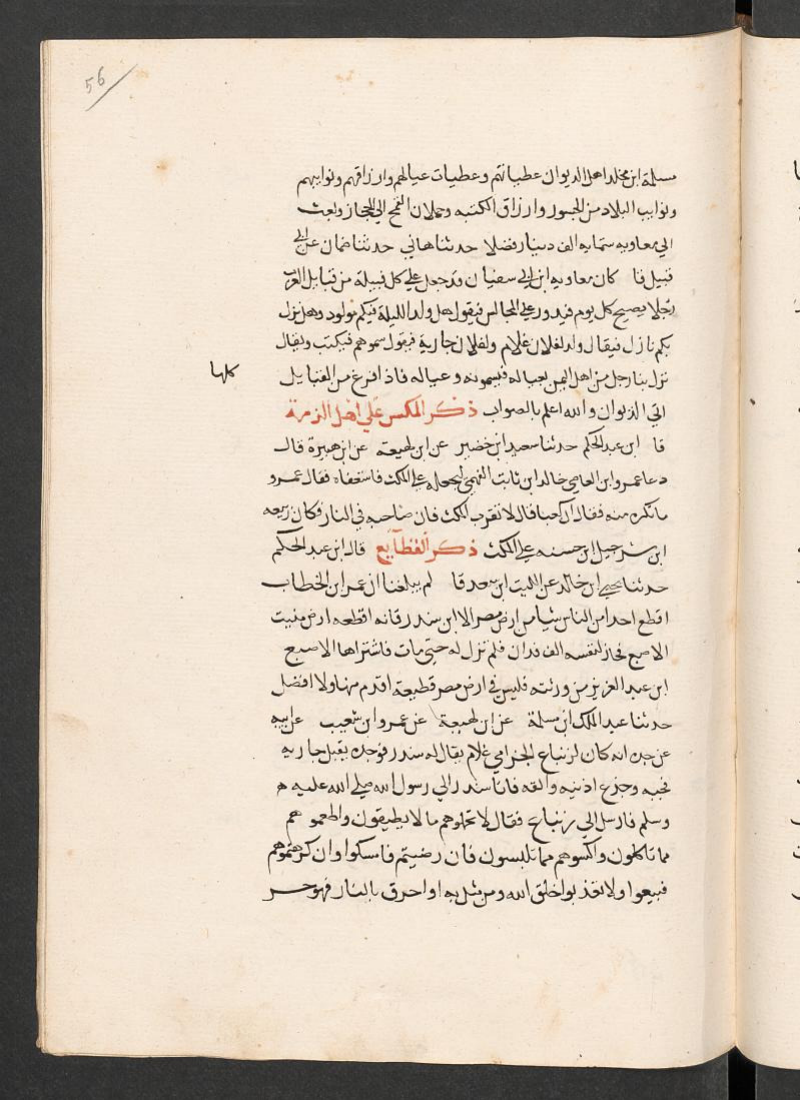 56
مسلمة ابن مخلد اهل الديوان عطياتهم وعطيات عيالهم وارزاقهم ونوايبهم
ونوايب البلاد من الجسور وارزاق الكتبه وحملان القمح الي الحجاز وبعث
الي معاويه ستمايه الف دينار فضلا حدثنا هاني حدثنا ضمان عن ابي
قبيل قا كان معاويه ابن ابي سفيان قد جعل علي كل قبيلة من قبايل العرب
رجلا يصيح كل يوم فيدور علي المجالس فيقول هل ولد الليلة فيكم مولود وهل نزل
بكم نازل فيقال ولد لفلان غلام ولفلان جارية فيقول سموهم فيكتب ويقال
نزل بنا رجل من اهل اليمن بعياله فيسمونه وعياله فاذا فرغ من القبايل
كلها
اتي الديوان والله اعلم بالصواب ذكر المكس علي اهل الذمة
قا ابن عبد الحكم حدثنا سعيد ابن خضير عن ابن لهيعه عن ابن هبيرة قال
دعا عمرو ابن العاصي خالد ابن ثابت الفهمي ليجعله علي المكث فاستعفاه فقال عمرو
ما تكره منه فقال ان كعبا قال لا تقرب المكث فان صاحبه في النار فكان ربيعه
ابن شرحبيل ابن حسنه علي المكث ذكر القطايع قال ابن عبد الحكم
حدثنا يحيي ابن خالد عن الليث ابن سعد قا لم يبلغنا ان عمر ابن الخطاب
اقطع احدا من الناس شيا من ارض مصر الا ابن سندر فانه اقطعه ارض منيت
الاصبغ فحاز لنفسه الف فدان فلم تزل له حتي مات فاشتراها الاصبع
ابن عبد العزيز من ورثته فليس في ارض مصر قطيعة اقدم منها ولا افضل
حدثنا عبد الملك ابن مسلمة عن ابن لهيعة عن عمرو ابن شعيب عن ابيه
عن جده انه كان لزنباع الجزامي غلام يقال له سندر فوجده يقبل جاريه
فجبه وجذع اذنيه وانفه فاتا سندر الي رسول الله صلي الله عليه
وسلم فارسل الي زنباع فقال لا تحملوهم ما لا يطيقون واطعموهم
مما تاكلون واكسوهم مما تلبسون فان رضيتم فامسكوا وان كرهتموهم
فبيعوا ولا تعذبوا خلق الله ومن مثل به او احرق بالنار فهو حر